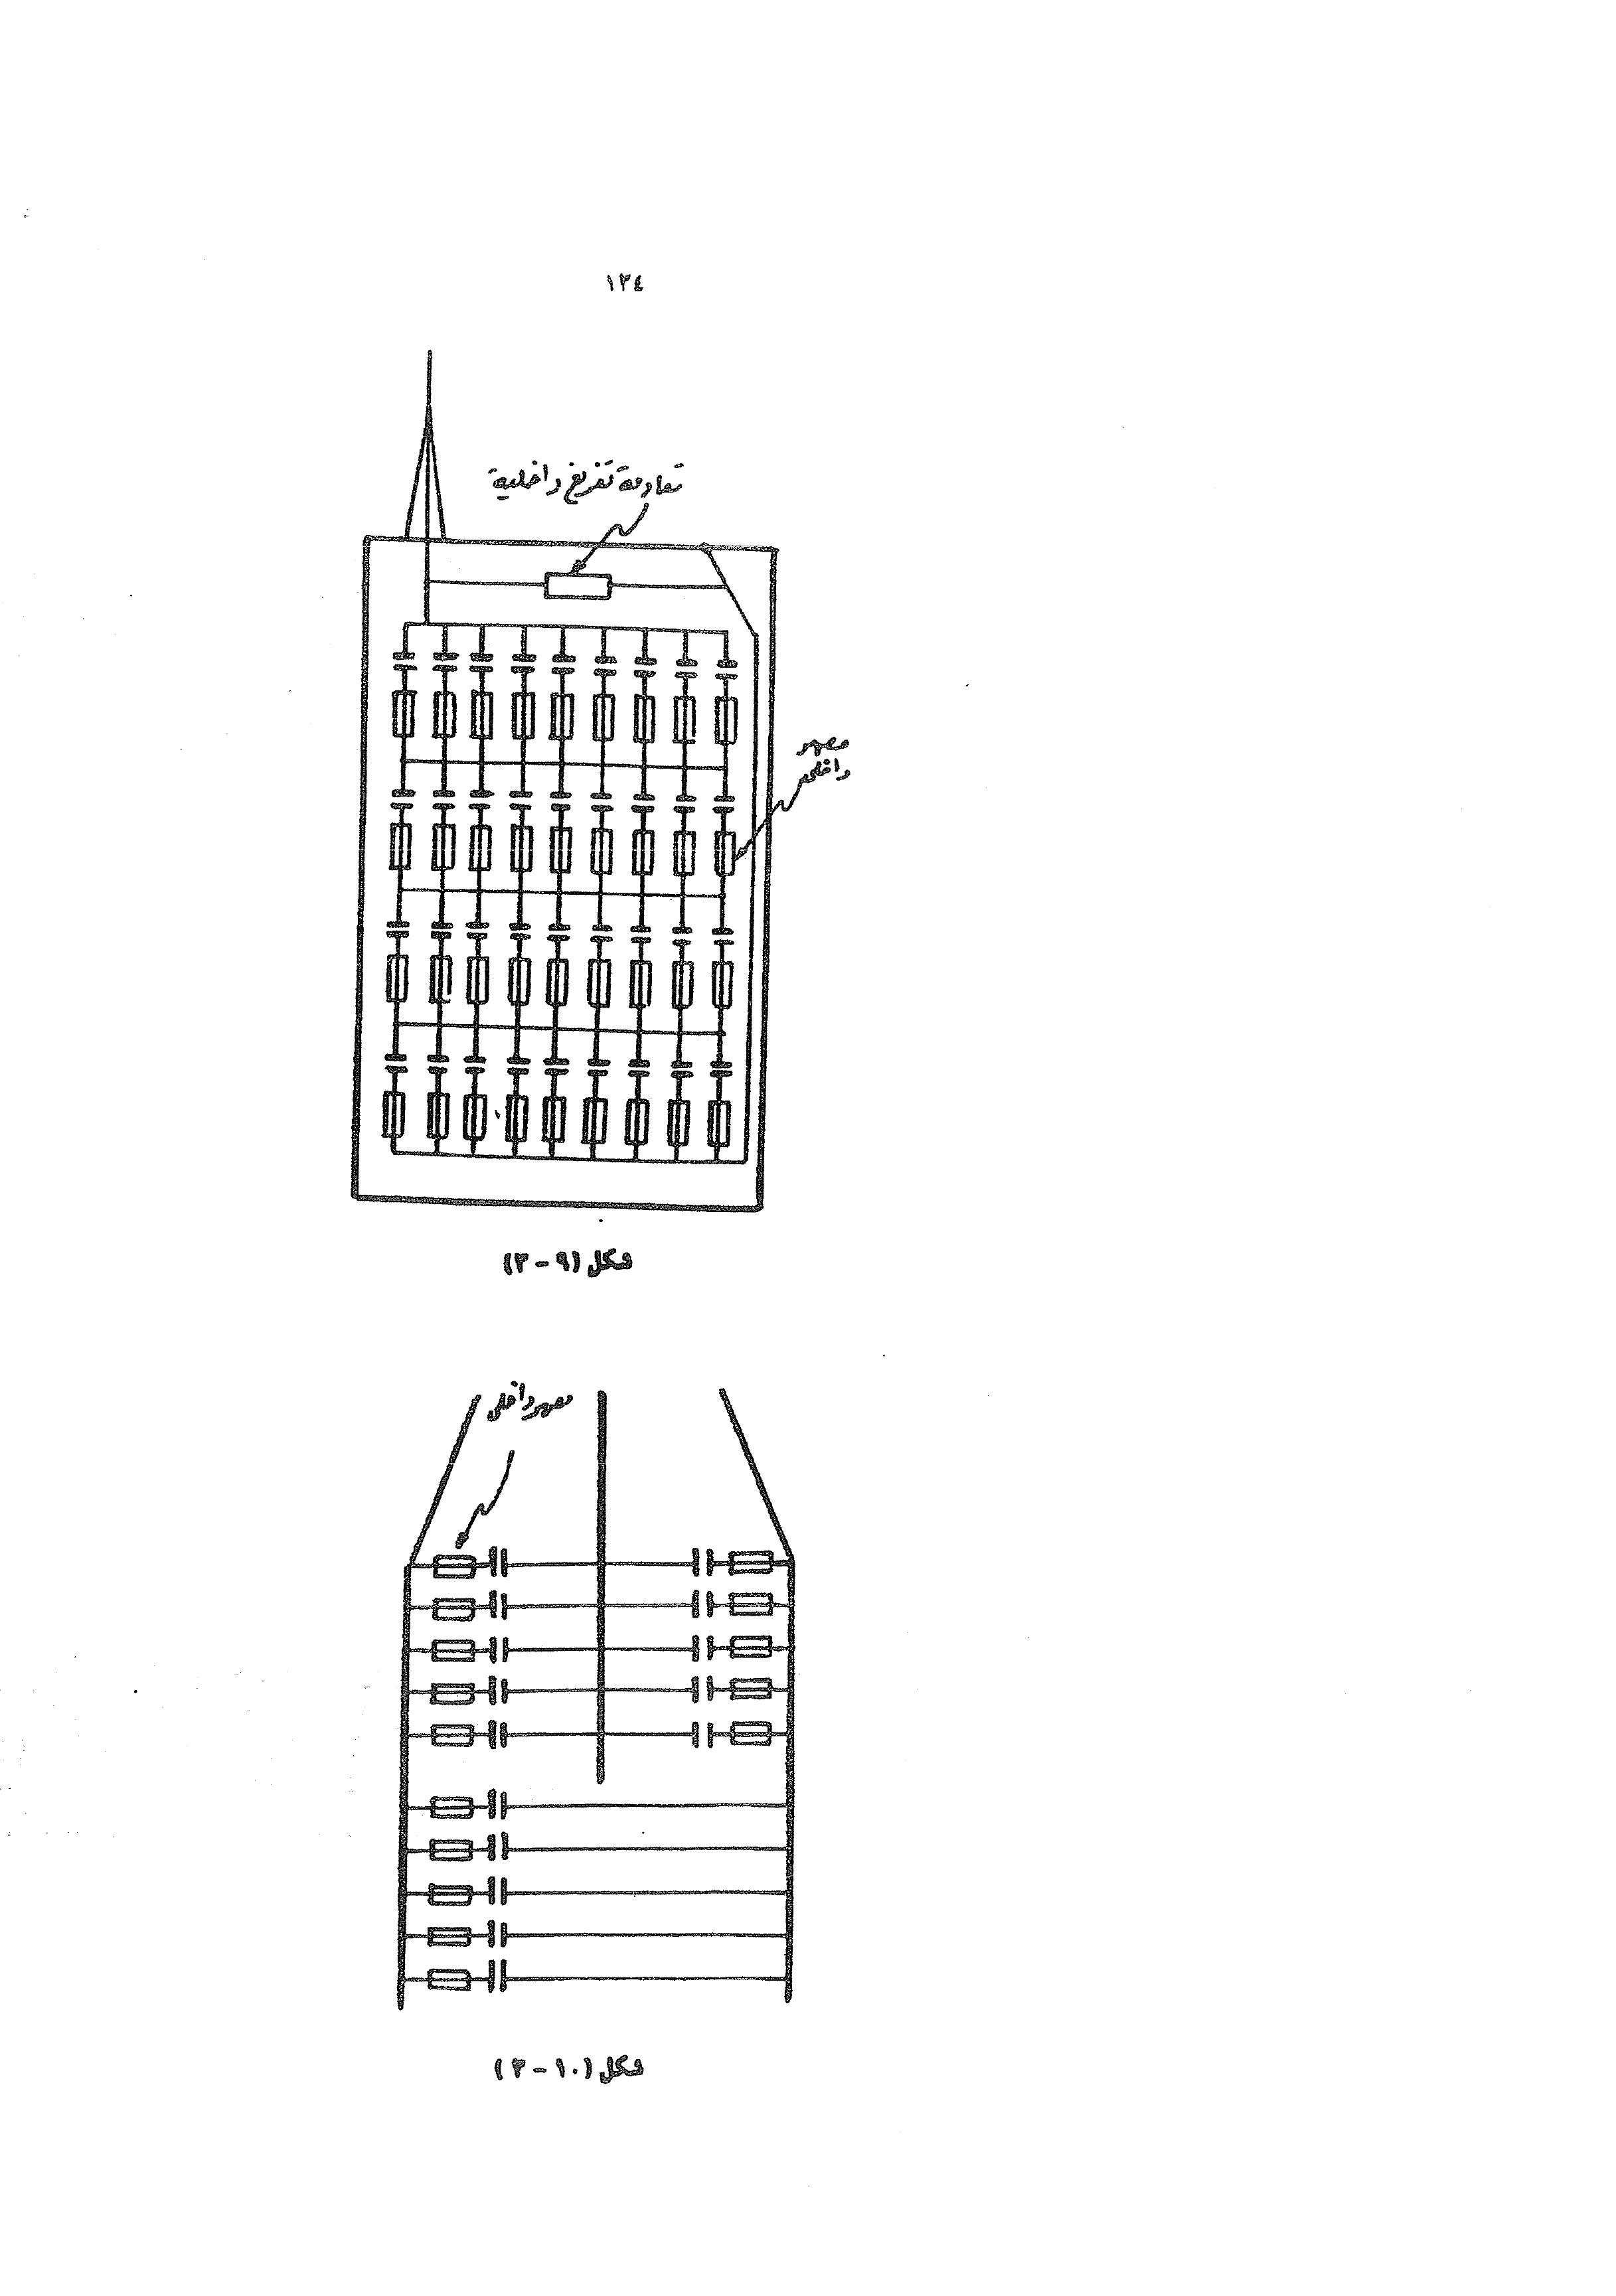 ١٣٤
مقاومة تفريغ داخلية
مصهر
داخلى
شكل (٩ - ٣)
مصهر داخلى
شكل (١٠ - ٣)